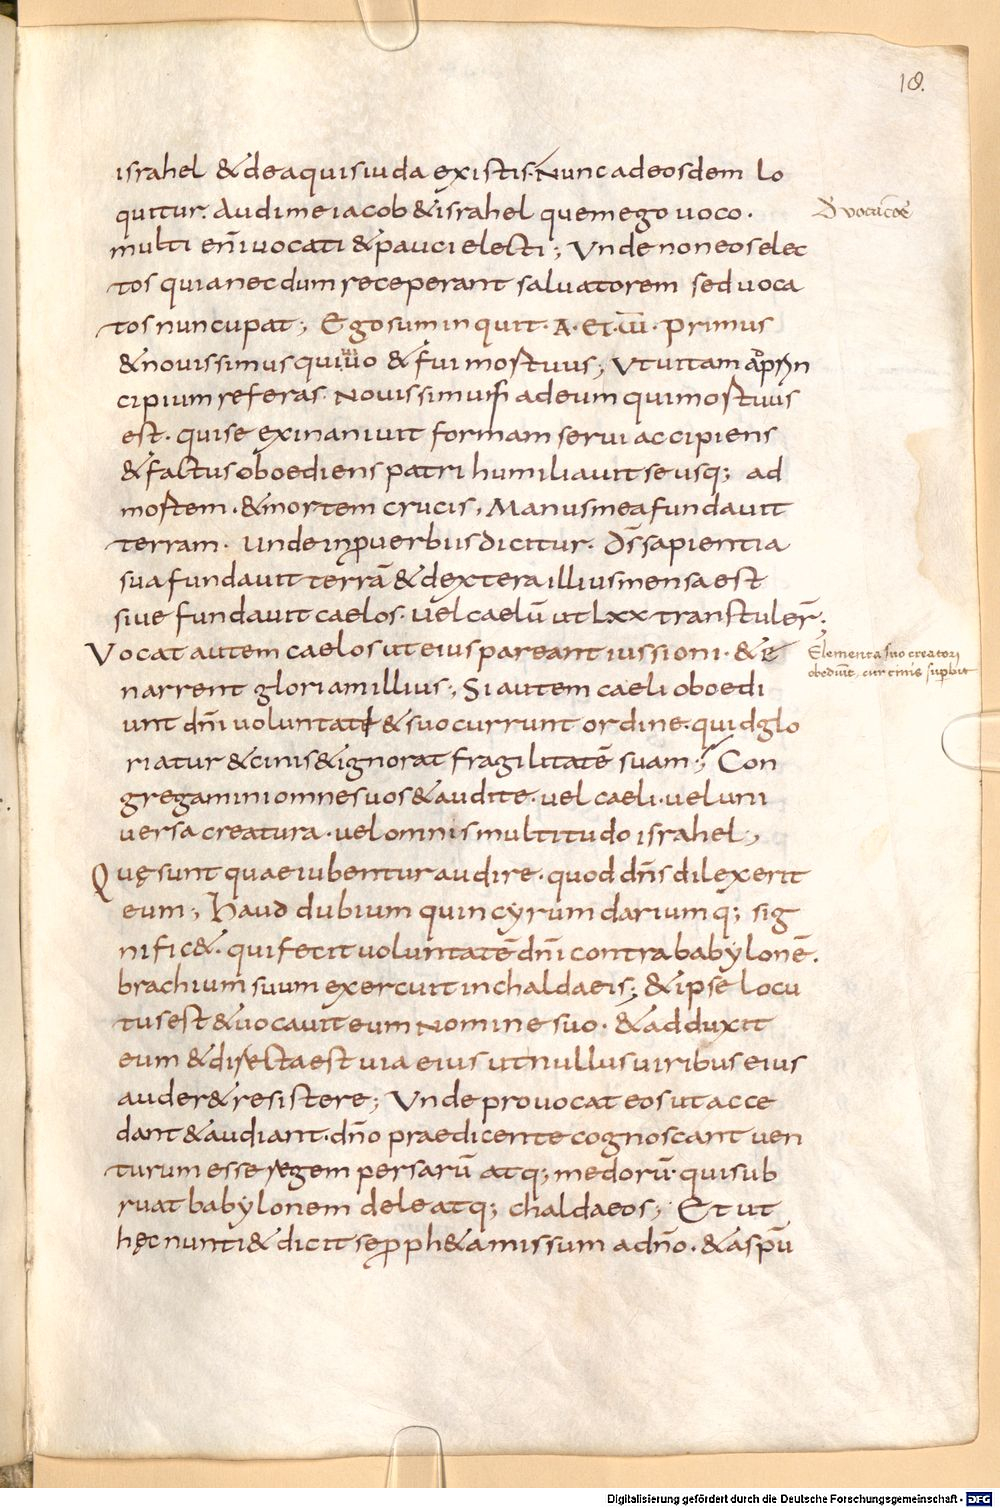 18.
israhel & de aquis iuda existis. Nunc ad eosdem lo
quitur. Audi me iacob & israhel quem ego uoco.
De vocac̄oe
multi en̄i uocati & pauci electi; Vnde non eos elec
tos quia necdum receperant saluatorem sed uoca
tos nuncupat; Ego sum inquit. A. et. ω. primus
& nouissimus qui uiuo & fui mortuus; Vt uitam ad prin
cipium referas. Nouissimum ad eum qui mortuus
est. qui se exinaniuit formam serui accipiens
& factus oboediens patri humiliauit se usq; ad
mortem. & mortem crucis, Manus mea fundauit
terram. Unde in ꝓuerbiis dicitur. Ds̄ sapientia
sua fundauit terrā & dextera illius mensa est
siue fundauit caelos. uel caelū ut lxx transtuler̄;
Vocat autem caelos ut eius pareant iussioni. & e
Elementa suo creatori
obediūt, cur cinis suꝑbit
narrent gloriam illius; Si autem caeli oboedi
unt dn̄i uoluntate & suo currunt ordine. quid glo
riatur & cinis & ignorat fragilitatē suam; Con
gregamini omnes uos & audite. uel caeli. uel uni
uersa creatura. uel omnis multitudo israhel,
Quę sunt quae iubentur audire. quod dn̄s dilexerit
eum; Haud dubium quin cyrum dariumq; sig
nific&. qui fecit uoluntatē dn̄i contra babylonē.
brachium suum exercuit in chaldaeis; & ipse locu
tus est & uocauit eum nomine suo. & adduxit
eum & directa est uia eius ut nullus uiribus eius
auder& resistere; Vnde prouocat eos ut acce
dant & audiant. dn̄o praedicente cognoscant uen
turum esse regem persarū atq; medorū. qui sub
ruat babylonem deleatq; chaldaeos; Et ut
hęc nunti& dicit se ꝓph&a missum a dn̄o. & a spū